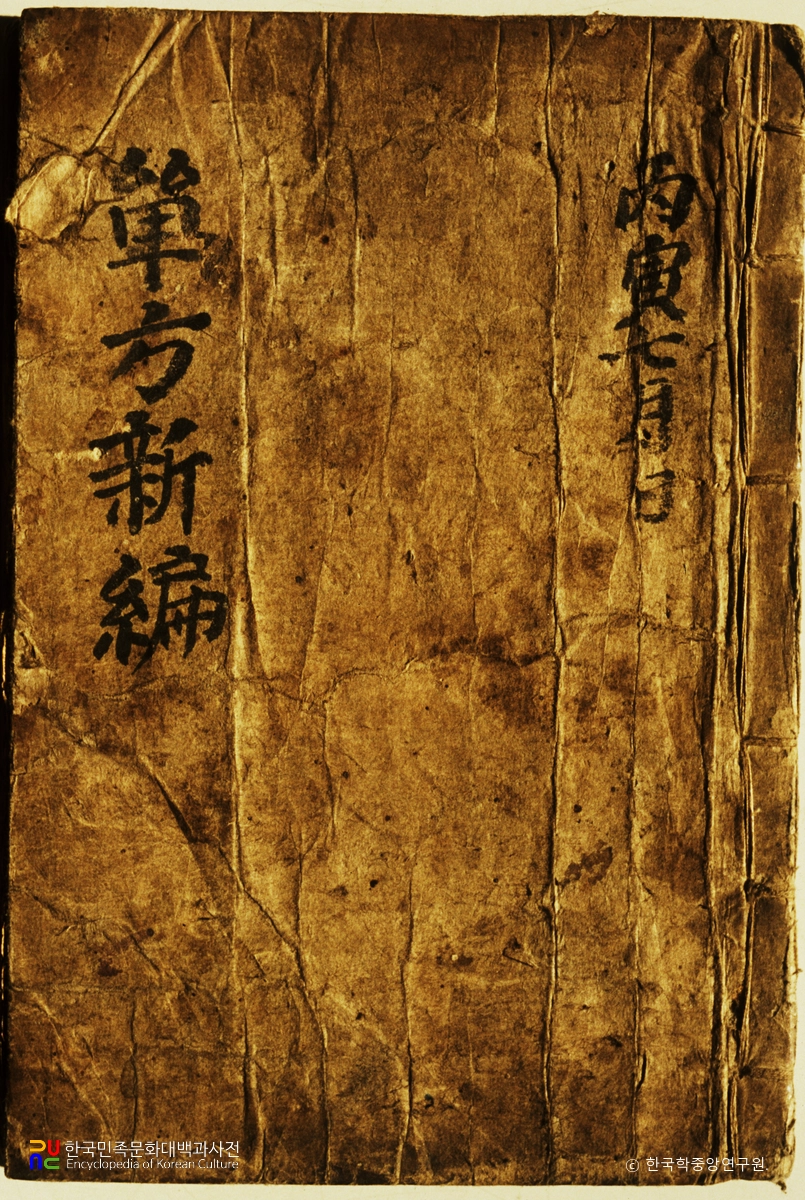 丙寅七月日
單方新編
한국민족문화대백과사전
Encyclopedia of Korean Culture
ⓒ 한국학중앙연구원